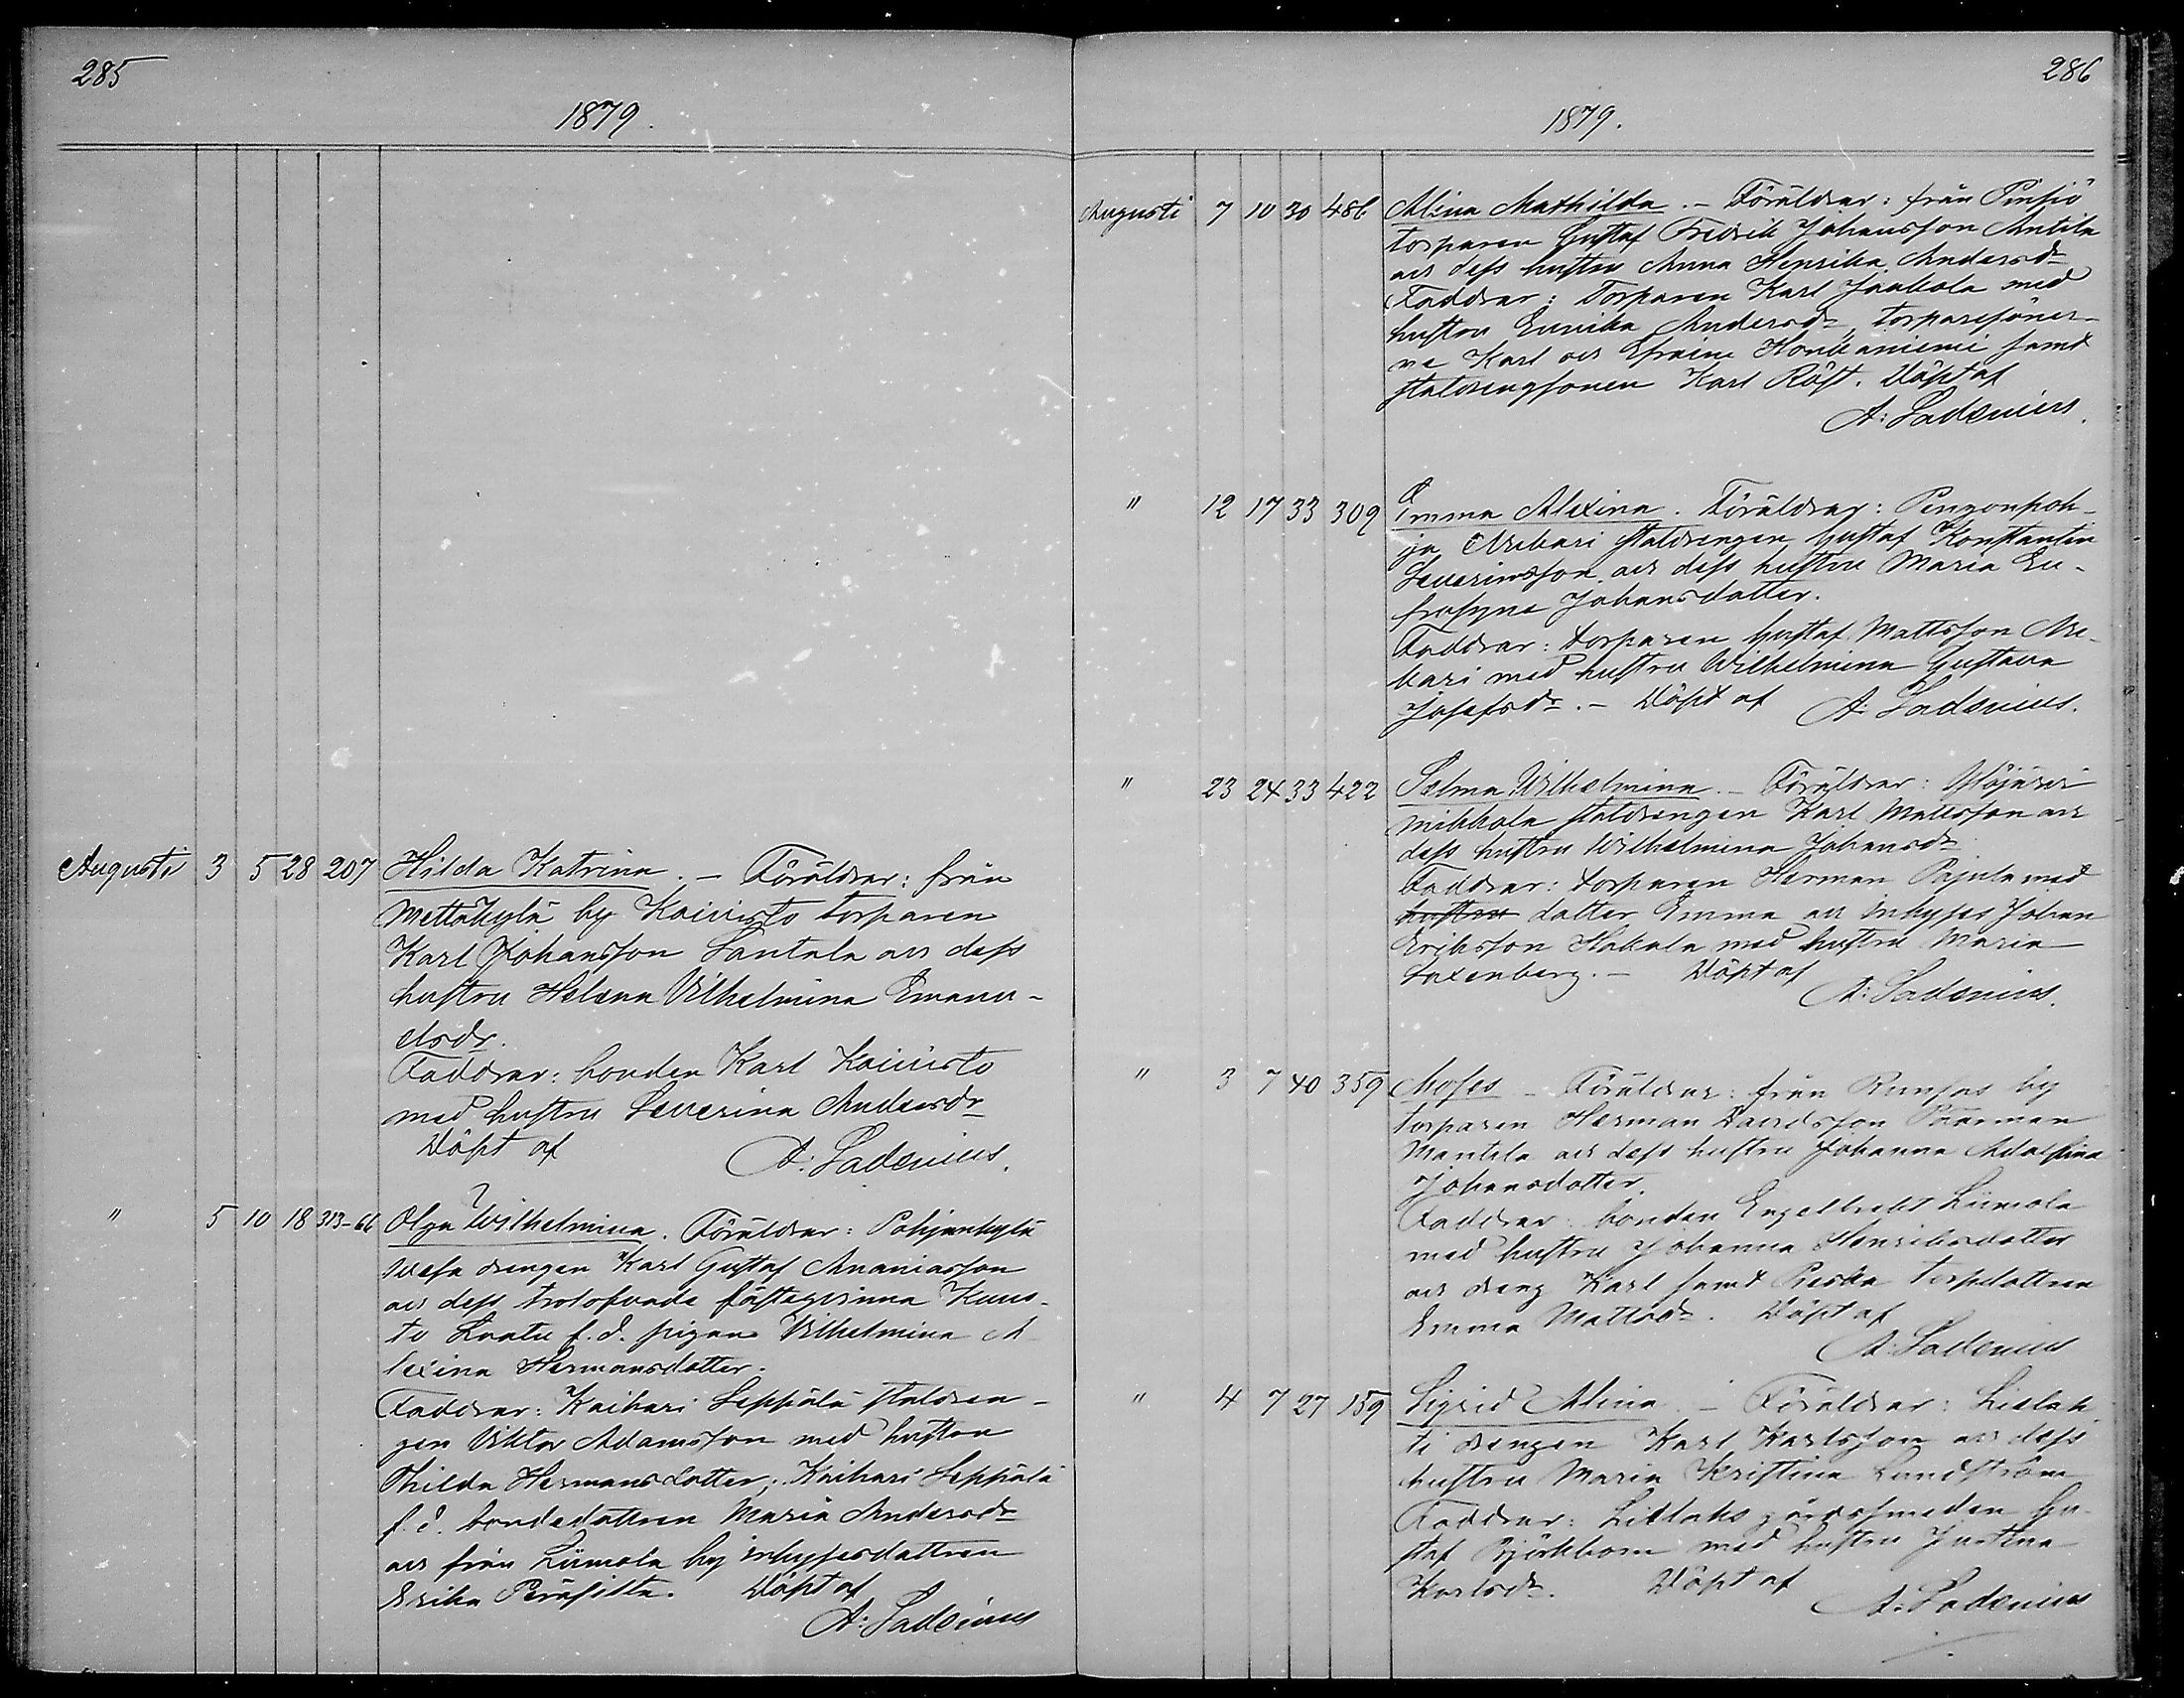 285
1879.
Augusti 3 5 28 207 Hilda Katrina. - Föräldrar: från
Mettäkylä by Koivisto torparen
Karl Johansson Santala och dess
hustru Helena Vilhelmina Emanu-
elsdr.
Faddrar: bonden Karl Koivisto
med hustru Severina Andersdr
Döpt af
A: Ladenius.
" 5 10 18 313-66 Olga Wilhelmina. Föräldrar: Pohjankylä
drengen Karl Gustaf Ananiasson
och dess trolofvade fästeqvinna
f.d. pigan Vilhelmina A
lexina Hermansdotter.
Faddrar: Kaihari Seppälä staldren-
gen Viktor Adamsson med hustru
Thilda Hermansdotter, Kaihari Seppälä
f.d. bondedottren Maria Andersdr
och från Liimola by inhysesdottren
Erika Döpt af
A: Ladenius
286
1879.
Augusti 7 10 30 486 Alina Mathilda. - Föräldrar: från Pinsiö
torparen Gustaf Fredrik Johansson Antila
och dess hustru Anna Henrika Andersdr
Faddrar: Torparen Karl Jaakola med
hustru Eunika Andersdr, torparesöner-
na Karl och Efraim Honkaniemi samt
staldrengsonen Karl Röst. Döpt af
A: Ladenius.
" 12 17 33 309 Emma Alexina. Föräldrar: Pengonpoh-
ja staldrengen Gustaf Konstantin
Severinsson och dess hustru Maria Eu-
frosyne Johansdotter.
Faddrar: torparen Gustaf Mattsson
med hustru Wilhelmina Gustava
Josefsdr. - Döpt af A: Ladenius.
" 23 24 33 422 Selma Wilhelmina. - Föräldrar: Ylöjärvi
Mikkola staldrengen Karl Mattsson och
dess hustru Wilhelmina Johansdr
Faddrar: torparen Herman Pajula med
hustru dotter Emma och inhyses Johan
Eriksson Hakala med hustru Maria
Saxenberg. - Döpt af
A: Ladenius.
" 3 7 40 359 Moses - Föräldrar: från by
torparen Herman Davidsson
Mantila och dess hustru Johanna Adolfina
Johansdotter.
Faddrar: bonden Engelbrekt Liimola
med hustru Johanna Henriksdotter
och dreng Karl samt torpdottren
Emma Mattsdr. Döpt af
A: Ladenius
" 4 7 27 159 Sigrid Alina. - Föräldrar: Lielah
ti drengen Karl Karlsson och dess
hustru Maria Kristina Lundström
Faddrar: Lielahs gårdssmeden Gu-
staf Björkbom med hustru Justina
Karlsdr. Döpt af
A: Ladenius